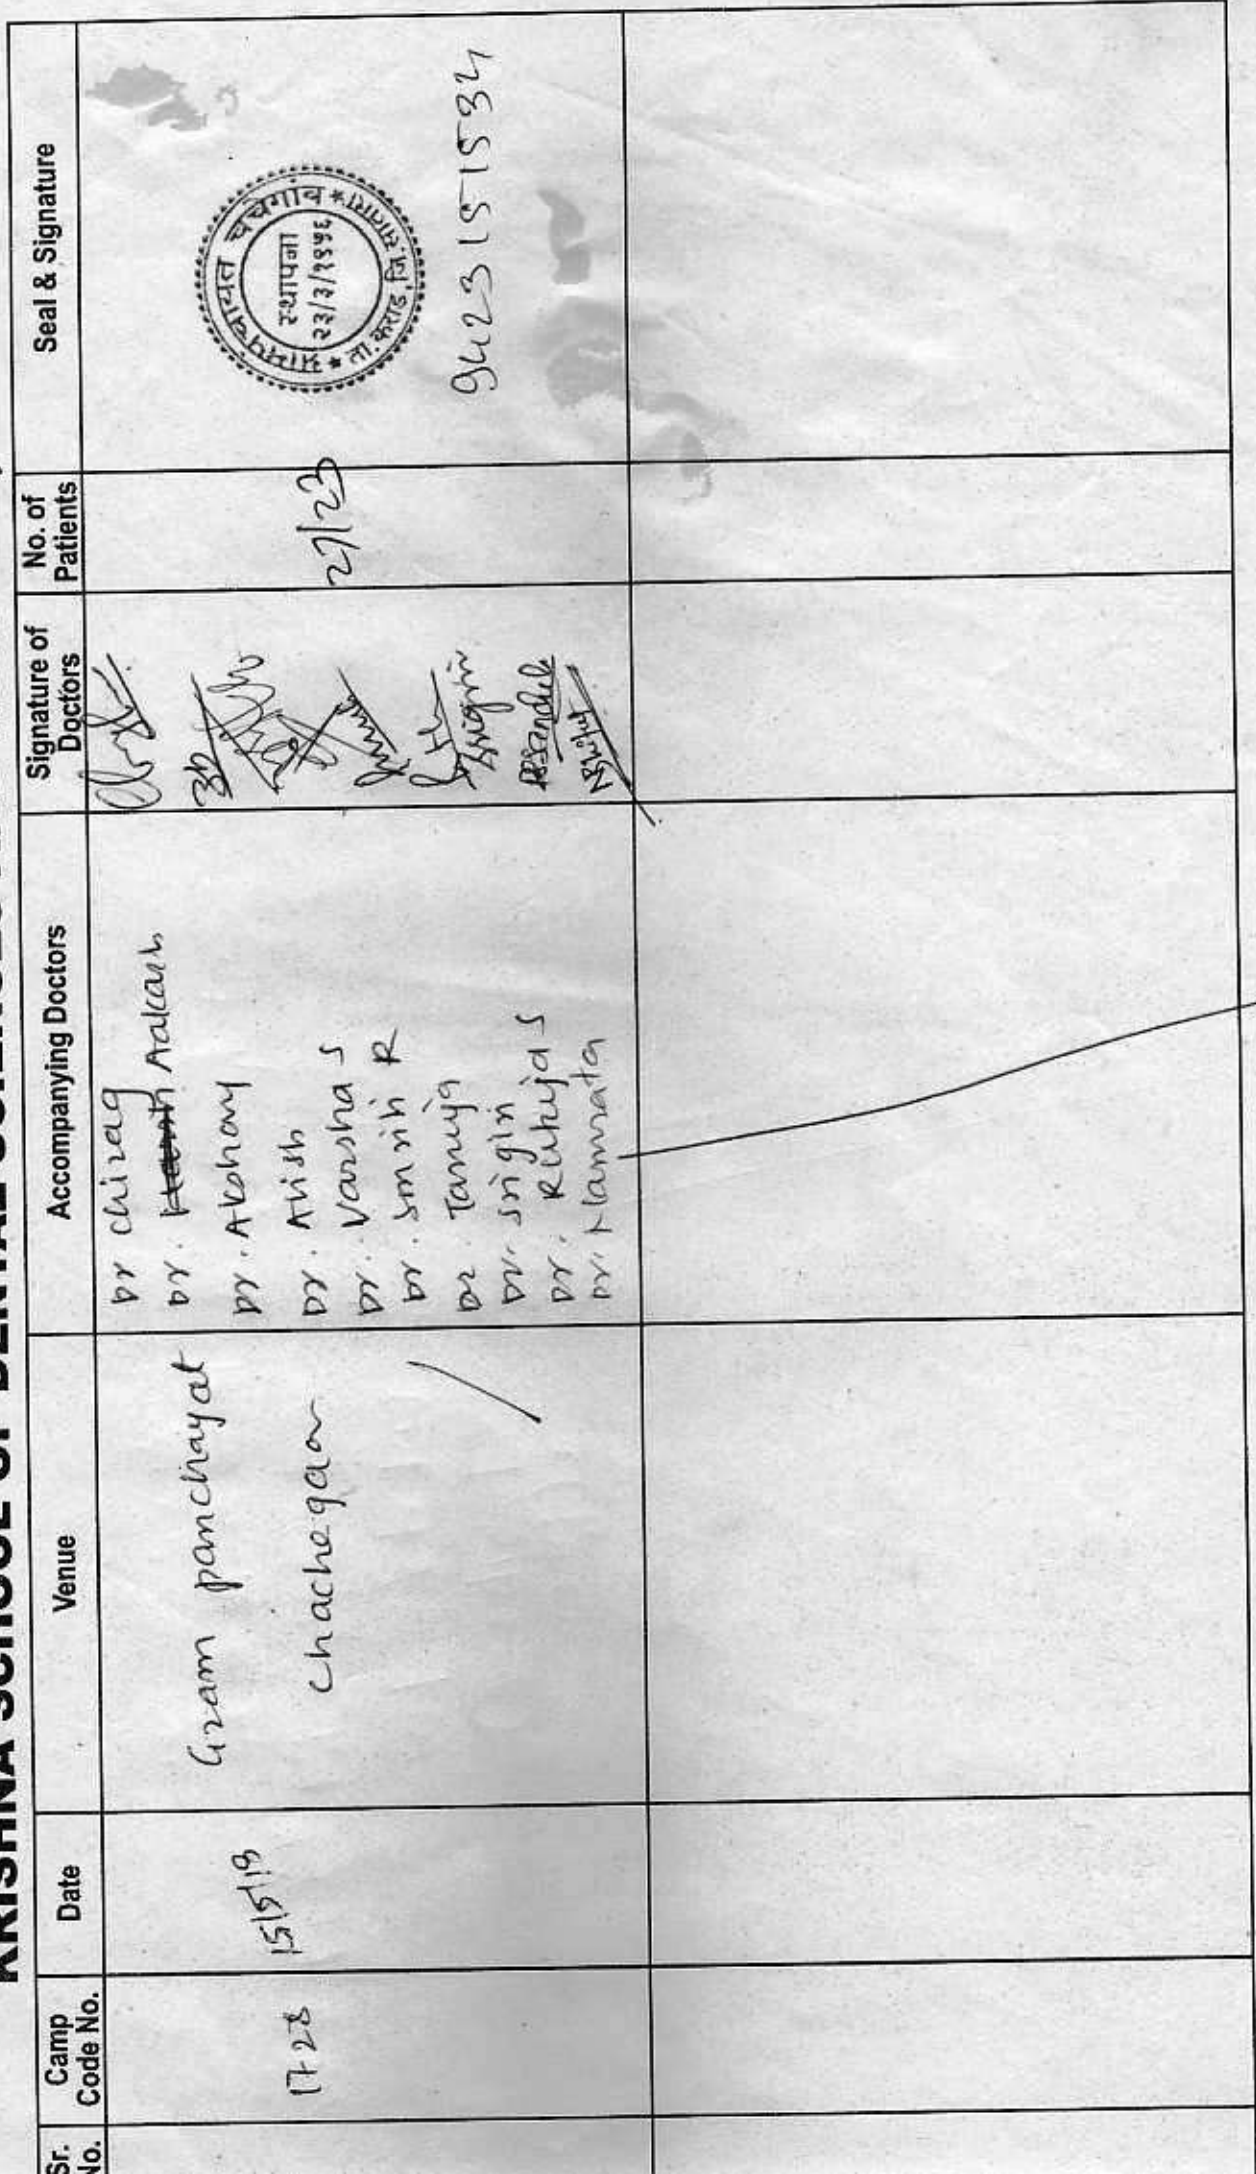 KRISHNA SCHOOL OF DENTAL SCIENCES
Sr. No.
Camp Code No.
Date
Venue
Accompanying Doctors
Signature of Doctors
No. of Patients
Seal & Signature
1728
15/5/19
Gram panchayat
Chachegaon
Dr Chirag
Dr. Aakash
Dr. Akshay
Dr. Atish
Dr. Varsha S
Dr. Smrih R
Dr. Tanuja
Dr. Srigin
Dr. Rutuja S
Dr. Namrata
27/23
ग्रामपंचायत चचेगांव
स्थापना
२३/३/१९५६
ता.कराड, जि.सातारा
9423151534